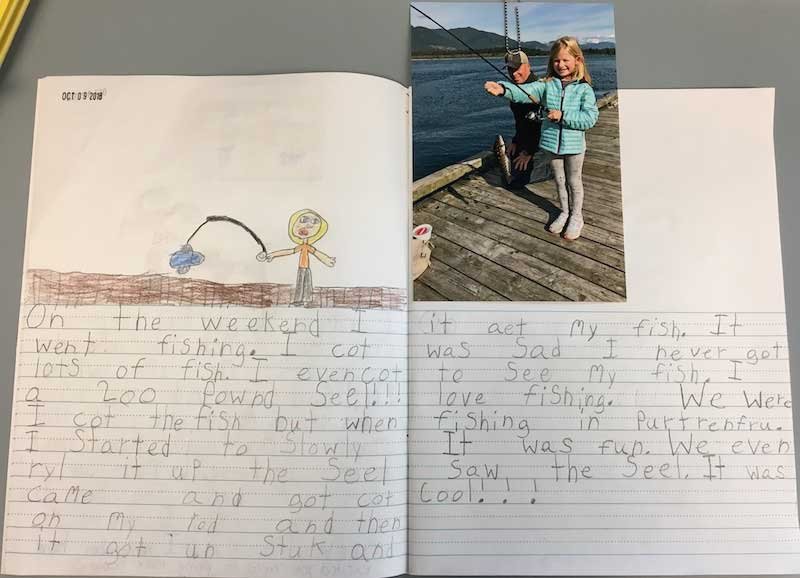 OCT 09 2018
On the weekend I
went fishing. I cot
lots of fish. I even cot
a 200 Pownd Seel!!!
I cot the fish but when
I Started to Slowly
ryl it up the Seel
came and got cot
on my rod and then
it got un Stuk and
it aet my fish. It
was Sad I never got
to See my fish. I
love fishing. We were
fishing in Purtrenfru.
It was fun. We even
Saw the Seel. It was
Cool!!!